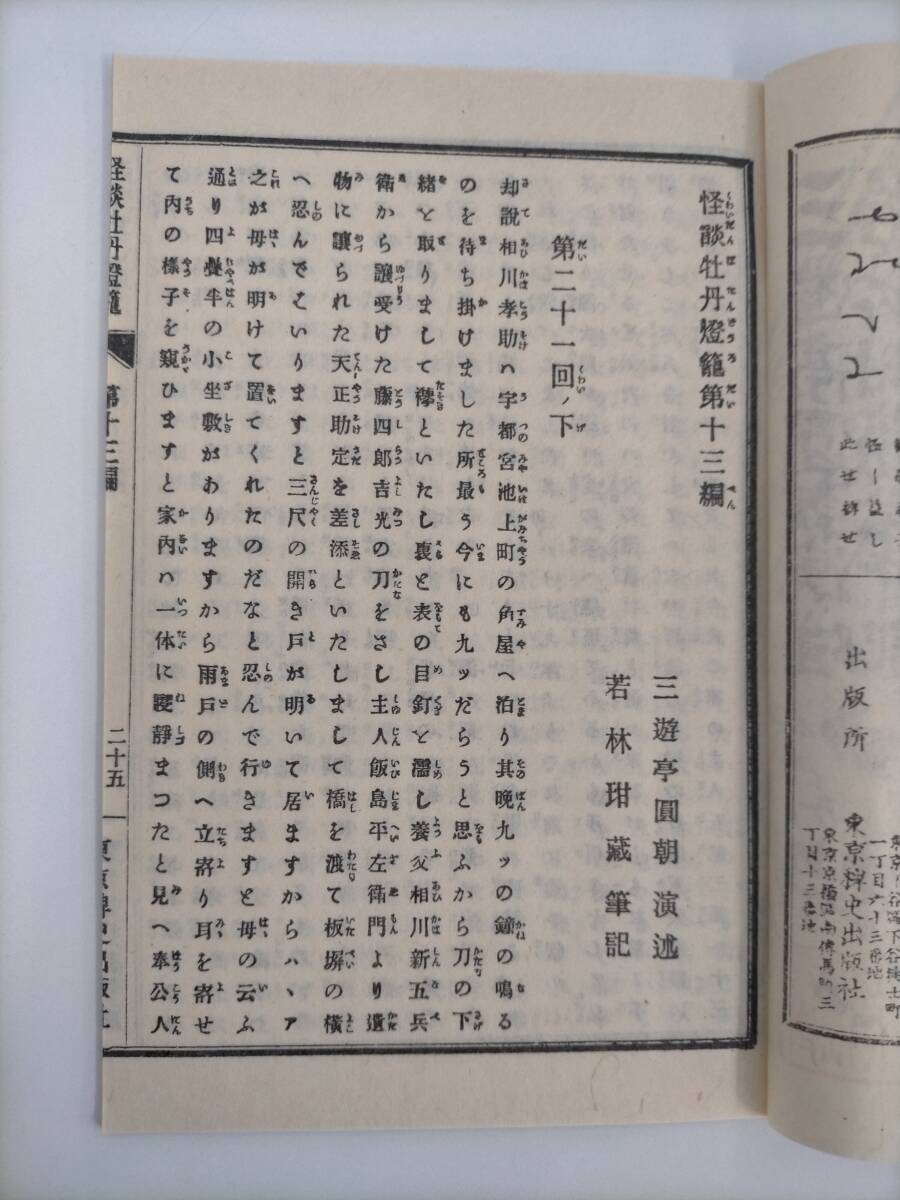 怪談牡丹燈籠第十三編
三遊亭圓朝演述
若林玵藏筆記
第二十一回ノ下
却說相川孝助ハ宇都宮池上町の角屋へ泊り其晚九ッの鐘の鳴る
のを待ち掛けました所最う今にも九ッだらうと思ふから刀の下
緒を取りまして襷といたし裏と表の目釘を濡し養父相川新五兵
衛から讓受けた藤四郎吉光の刀をさし主人飯島平左衛門より遺
物に讓られた天正助定を差添といたしまして橋を渡て板塀の橫
へ忍んでまいりますと三尺の開き戶が明いて居ますからハヽア
之が母が明けて置てくれたのだなと忍んで行きますと母の云ふ
通り四疊半の小坐敷がありますから雨戶の側へ立寄り耳を寄せ
て內の樣子を窺ひますと家內ハ一体に寢靜まつたと見へ奉公人
怪談牡丹燈籠
第十三編
二十五
東京稗史出版社
出版所
東京稗史出版社
一丁目六十三番地
東京京橋區南傳馬町三
丁目十三番地